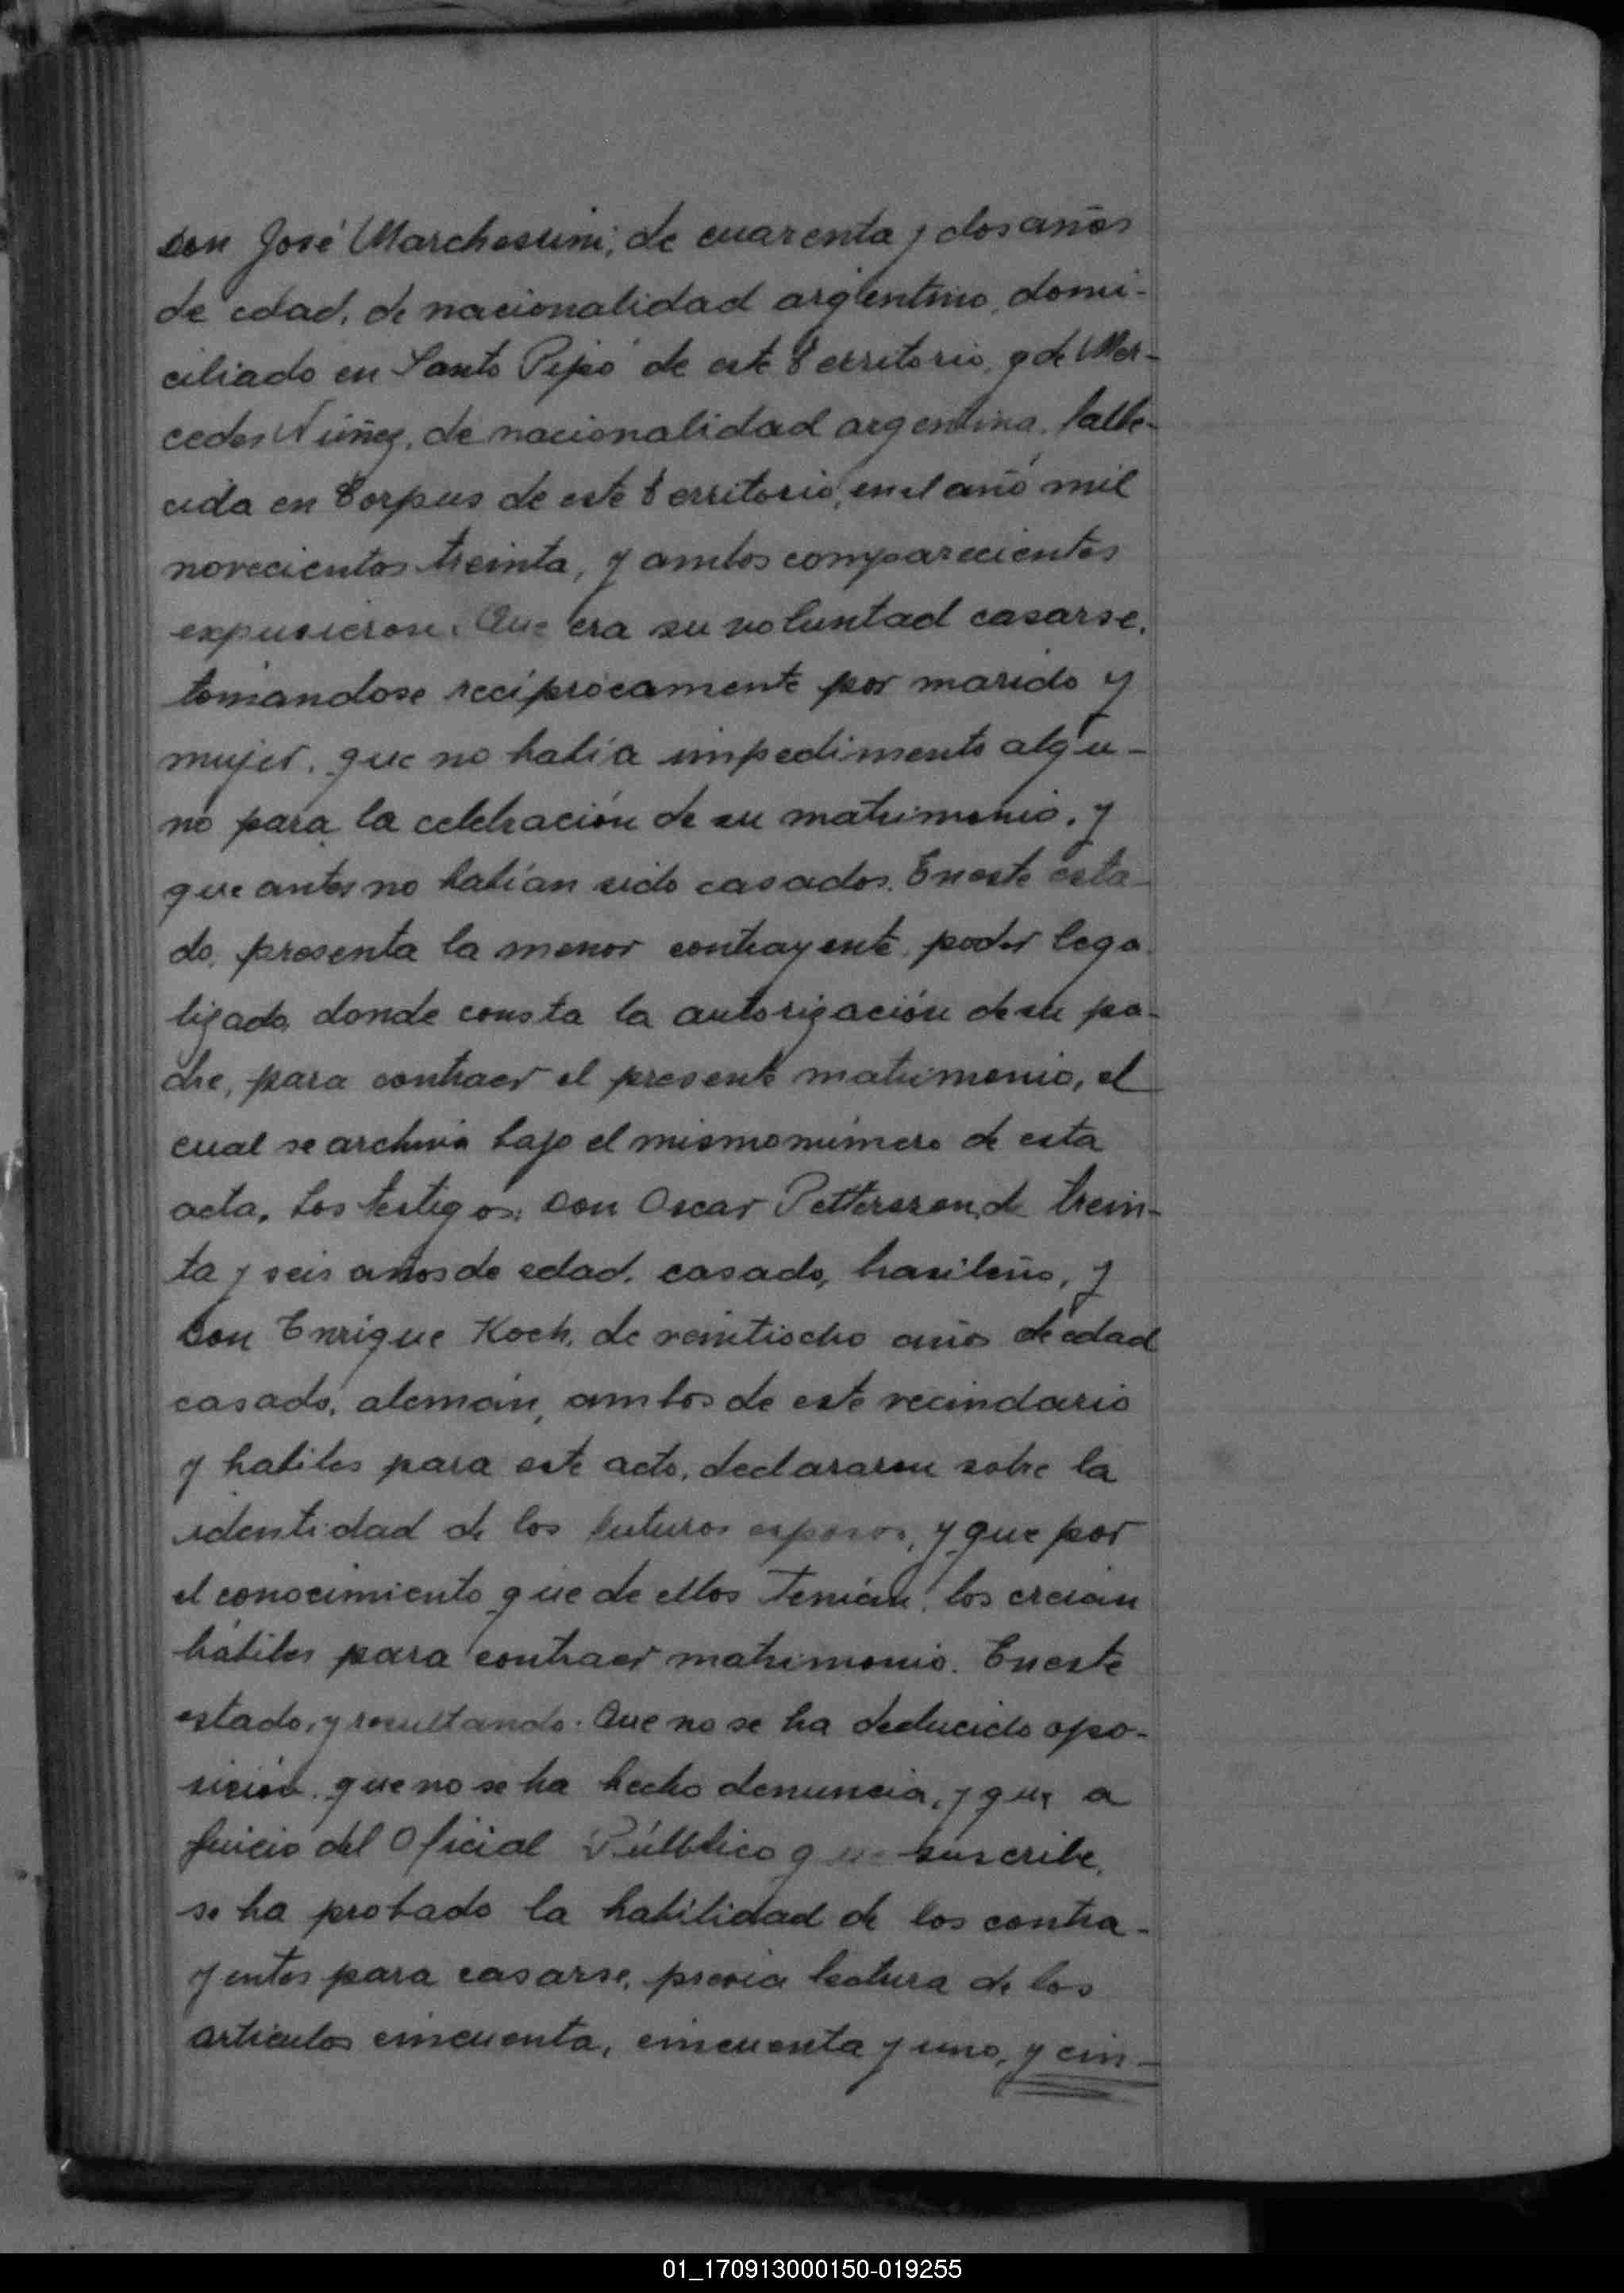 Don José Marchesini, de cuarenta y dos años
de edad, de nacionalidad argentino, domi-
ciliado en Santo Pipó de este Territorio, y de Mer-
cedes Núñez, de nacionalidad argentina, falle-
cida en Corpus de este Territorio, en el año mil
novecientos treinta, y ambos comparecientes
expusieron: Que era su voluntad casarse,
tomandose recíprocamente por marido y
mujer, que no había impedimento algu-
no para la celebración de su matrimonio, y
que antes no habían sido casados. En este esta-
do, presenta la menor contrayente, poder lega-
lizado, donde consta la autorización de su pa-
dre, para contraer el presente matrimonio, el
cual se archiva bajo el mismo número de esta
acta. Los testigos: Don Oscar Petterson, de trein-
ta y seis años de edad, casado, brasileño, y
Don Enrique Koch, de veintiocho años de edad
casado, alemán, ambos de este vecindario
y habiles para este acto, declararon sobre la
identidad de los futuros esposos, y que por
el conocimiento que de ellos tenían, los creían
hábiles para contraer matrimonio. En este
estado, y resultando: Que no se ha deducido opo-
sición, que no se ha hecho denuncia, y que a
juicio del Oficial Público que suscribe,
se ha probado la habilidad de los contra-
yentes para casarse, previa lectura de los
artículos cincuenta, cincuenta y uno, y cin-
01_170913000150-019255